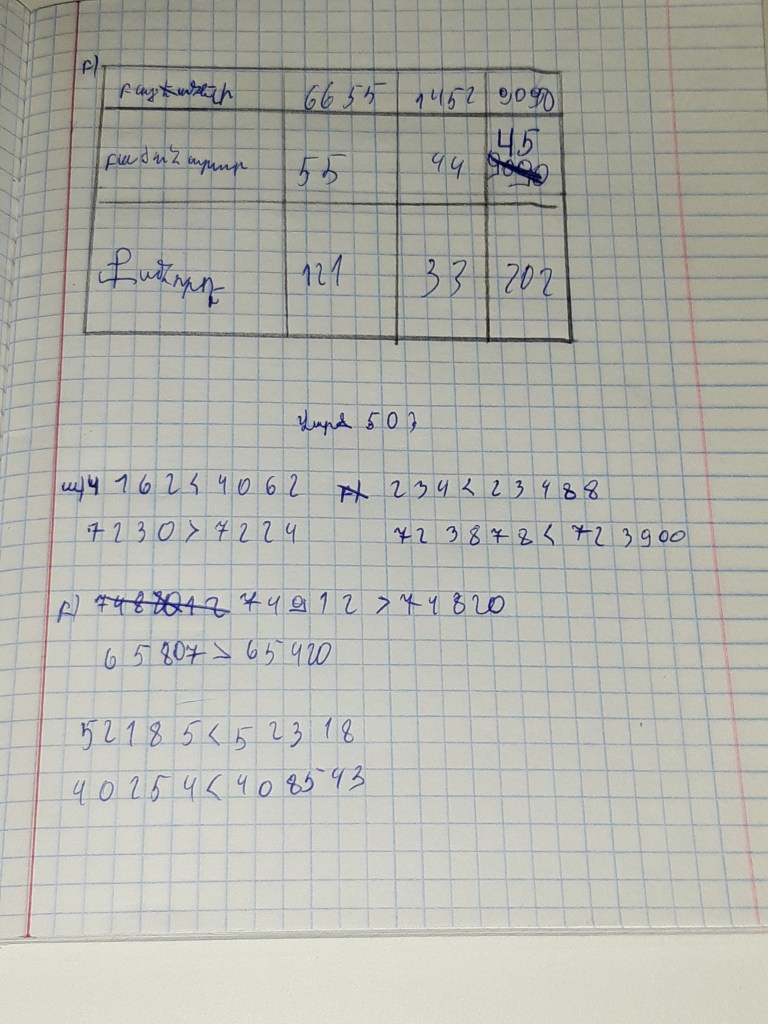 բ)
6655 1452 9090
55 44 45
Քանորդ 121 33 202
503
ա) 4162 < 4062 234 < 23488
7230 > 7224 723878 < 723900
բ) 74912 > 74820
65807 > 65420
52185 < 52318
40254 < 408543